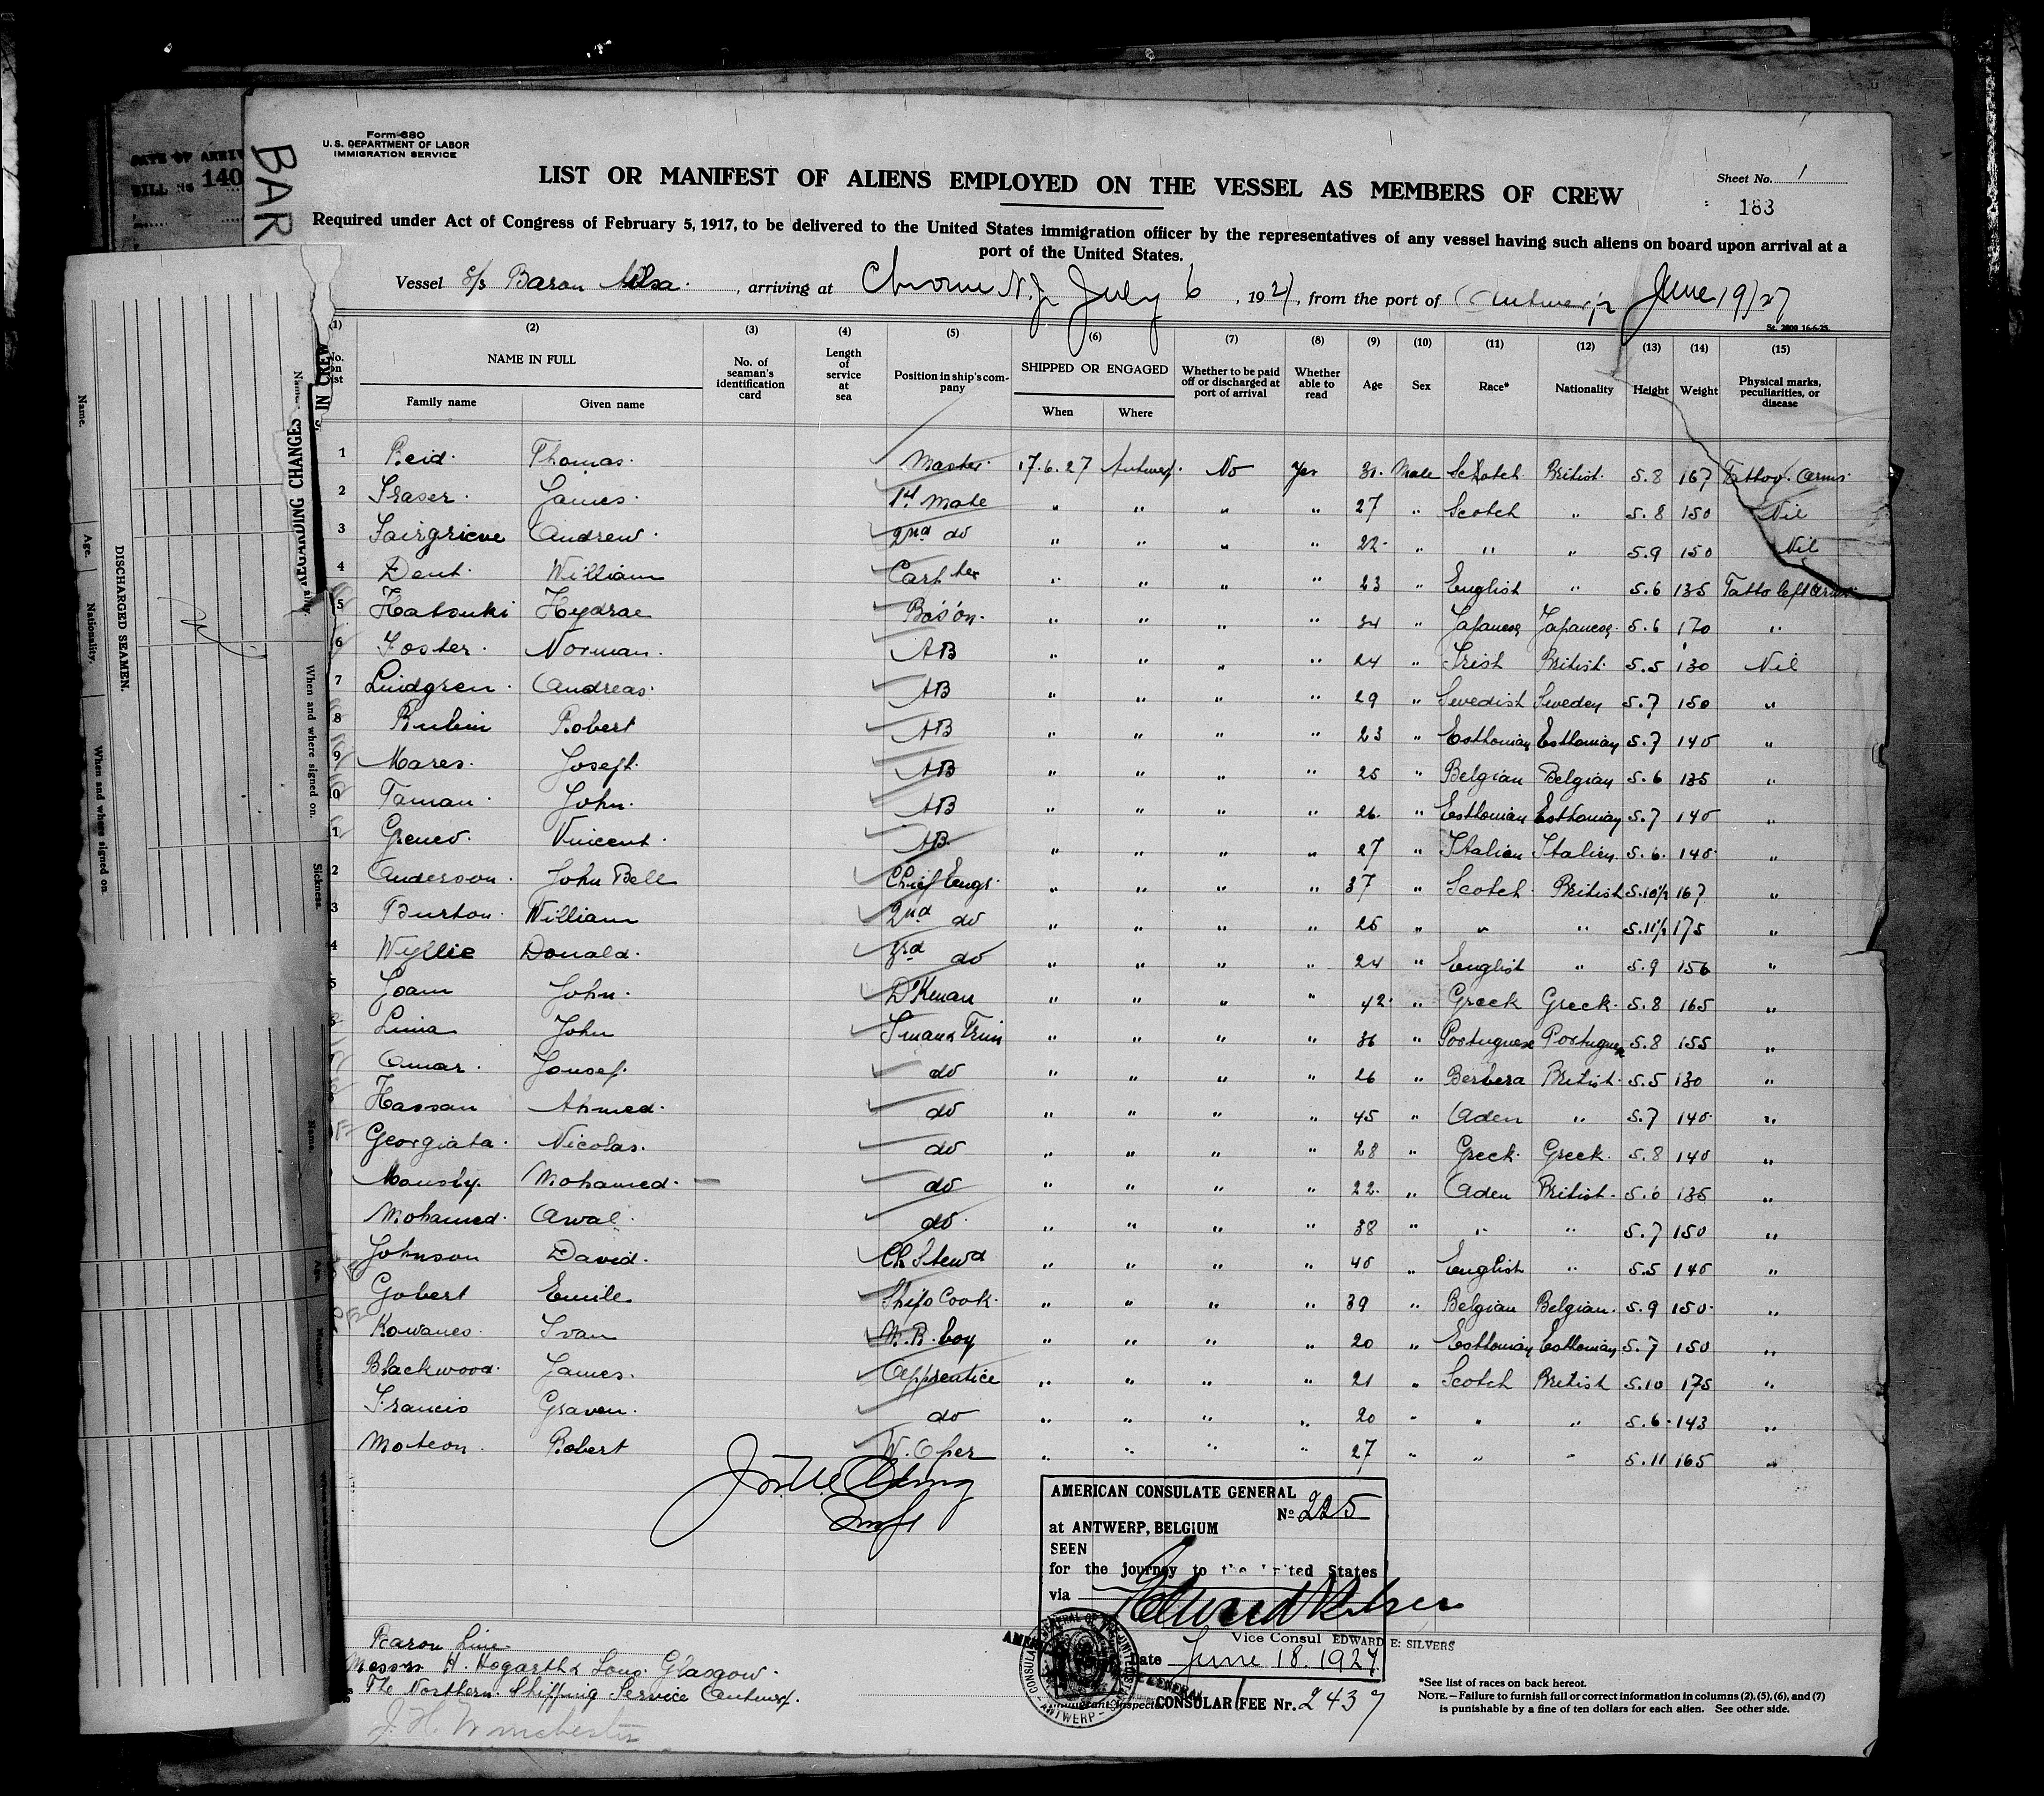 Form 680
U. S. DEPARTMENT OF LABOR
IMMIGRATION SERVICE
LIST OR MANIFEST OF ALIENS EMPLOYED ON THE VESSEL AS MEMBERS OF CREW
Sheet No. 1
183
Required under Act of Congress of February 5, 1917, to be delivered to the United States immigration officer by the representatives of any vessel having such aliens on board upon arrival at a
port of the United States.
Vessel s/s Baron Ailsa, arriving at Chrome N.J. July 6, 1927, from the port of Antwerp June 19/27
St. 2800 16-6-25.
(1) (2) (3) (4) (5) (6) (7) (8) (9) (10) (11) (12) (13) (14) (15)
No. on list NAME IN FULL Family name Given name No. of seaman's identification card Length of service at sea Position in ship's company SHIPPED OR ENGAGED When Where Whether to be paid off or discharged at port of arrival Whether able to read Age Sex Race* Nationality Height Weight Physical marks, peculiarities, or disease
1 Reid. Thomas. Master. 17.6.27 Antwerp. No Yes 31. Male Scotch British. 5.8 167 Tattoo. Arms.
2 Fraser. James. 1st Mate " " " " 27 " Scotch " 5.8 150 Nil
3 Fairgrieve Andrew. 2nd do " " " " 22. " " " 5.9 150 Nil
4 Dent. William Carpter " " " " 23 " English " 5.6 135 Tatto left arm.
5 Hatsuki Hydrae Bos'on. " " " " 34 " Japanese Japanese. 5.6 170 "
6 Foster. Norman. AB " " " " 24 " Irish British. 5.5 130 Nil
7 Lindgren. Andreas. AB " " " " 29 " Swedish Sweden 5.7 150 "
8 Rubin Robert AB " " " " 23 " Esthonian Esthonian 5.7 140 "
9 Mares. Joseph. AB " " " " 25 " Belgian Belgian 5.6 135 "
10 Taman. John. AB " " " " 26. " Esthonian Esthonian 5.7 140 "
1 Vincent. AB. " " " " 27 " Italian Italian. 5.6. 140. "
2 Anderson. John Bell Chief Engr. " " " " 37 " Scotch. British 5.10½ 167 "
3 Burton. William 2nd do " " " " 25 " " " 5.11½ 175 "
4 Wyllie Donald. 3rd do " " " " 24 " English " 5.9 156 "
5 Joam John. D'Keman " " " " 42. " Greek Greek. 5.8 165 "
Lima John Fman & Trim " " " " 36 " Portuguese Portuguese 5.8 155 "
Omar. Yousef. do " " " " 26 " Berbera British. 5.5 130 "
Hassan Ahmed. do " " " " 45 " Aden " 5.7 140. "
Georgiata. Nicolas. do " " " " 28 " Greek. Greek. 5.8 140 "
Mohamed. do " " " " 22. " Aden British. 5.6 135 "
Mohamed. Awal. do. " " " " 38 " " " 5.7 150 "
Johnson David. Ch Stewd " " " " 40 " English " 5.5 140 "
Gobert Emile Ships Cook. " " " " 39 " Belgian Belgian. 5.9 150. "
Kowanes. Ivan M. R. boy " " " " 20 " Esthonian Esthonian 5.7 150 "
Blackwood. James. Apprentice " " " " 21 " Scotch British 5.10 175 "
Francis Graven. do " " " " 20 " " " 5.6. 143 "
Robert W. Oper " " " " 27 " " " 5.11 165 "
AMERICAN CONSULATE GENERAL
No 225
at ANTWERP, BELGIUM
SEEN
for the journey to the United States
via
Vice Consul EDWARD E: SILVERS
Date June 18. 1927.
CONSULAR FEE Nr. 2437
ANTWERP
Baron Line
Messrs H. Hogarth & Sons. Glasgow.
The Northern Shipping Service Antwerp.
J. H. Winchester
*See list of races on back hereof.
NOTE.—Failure to furnish full or correct information in columns (2), (5), (6), and (7)
is punishable by a fine of ten dollars for each alien. See other side.
DATE OF ARRIV
BILL No 140
BAR
REGARDING CHANGES IN CREW
DISCHARGED SEAMEN.
Name. Age. Nationality. When and where signed on.
When and where signed on. Sickness.
Name. Age. Nationality.